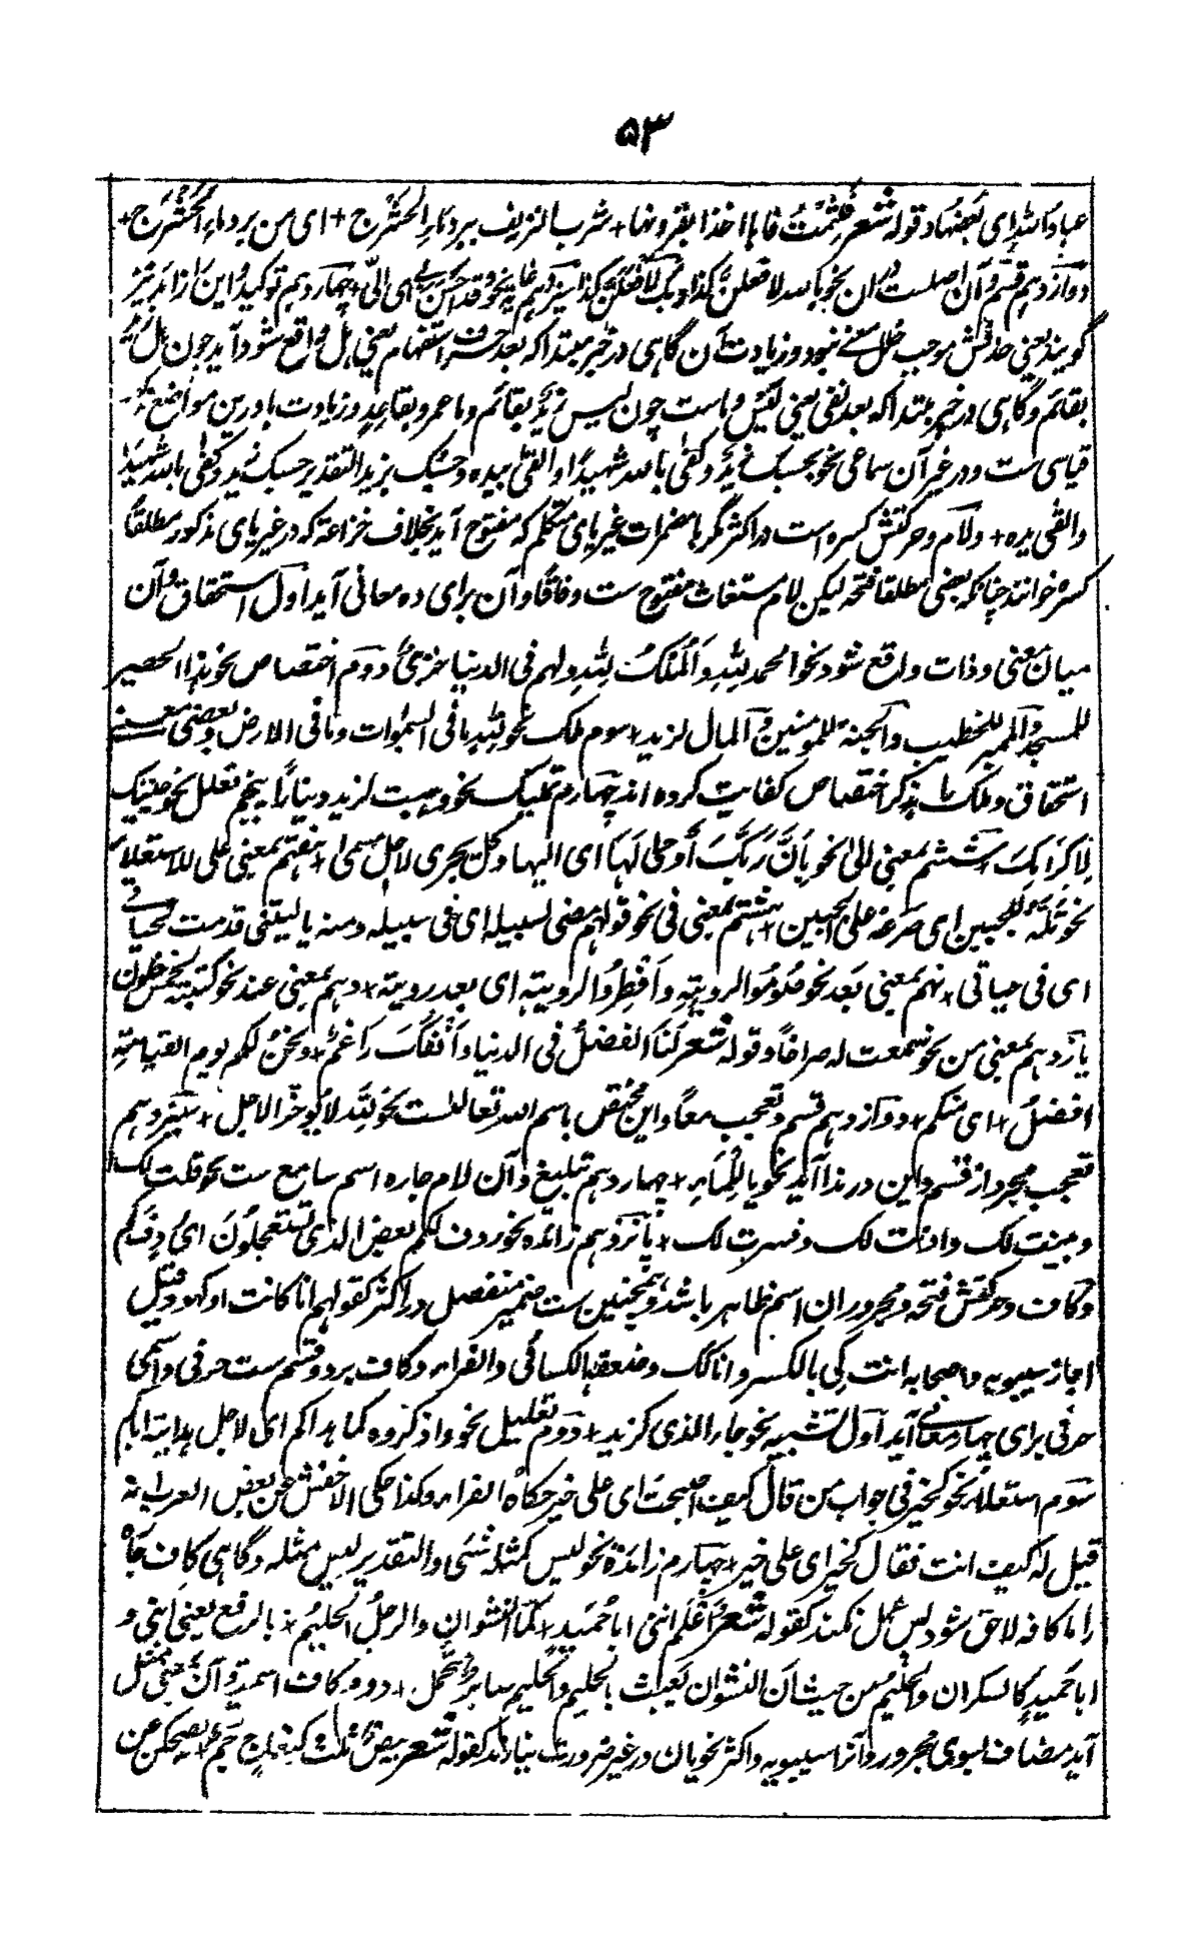 ۵۳
عباد الله ای بعضها و قوله شعر فلثمت فاها اخذا بقرونها + شرب النزیف ببرد ماء الحشرج + ای من برد ماء الحشرج +
دوازدهم قسم و آن اصلست دران نحو بالله لا فعلن کذا و بک لافعلن کذا سیزدهم غایه نحو قد احسن بی ای الیّ + چهاردهم توکید و این را زائد نیز
گویند یعنی حذفش موجب خلل معنی نبود و زیادت آن گاهی در خبر مبتدا که بعد حرف استفهام یعنی هل واقع شود آید چون هل زید
بقائم و گاهی در خبر مبتدا که بعد نفی یعنی لیس و ماست چون لیس زید بقائم و ما عمرو بقاعد و زیادت با درین مواضع
قیاسی ست و در غیر آن سماعی نحو بحسبک زید و کفی بالله شهیدا و القی بیده و حسبک بزید التقدیر حسبک زید و کفی بالله شهیدا
والقی یده + و لام و حرکتش کسره است در اکثر مگر با مضمرات غیر یای متکلم که مفتوح آید بخلاف خزاعه که در غیر یای مذکور مطلقاً
کسره خوانند چنانکه بعضی مطلقا فتحه لیکن لام مستغاث مفتوح ست وفاقا و آن برای ده معانی آید اول استحقاق و آن
میان معنی و ذات واقع شود نحو الحمد لله والملک لله ولهم فی الدنیا خزی دوم اختصاص نحو هذا الحصیر
للمسجد والمنبر للخطیب والجنة للمومنین و المال لزید + سوم ملک نحو لله ما فی السموات وما فی الارض و بعضی معنی
استحقاق و ملک را بذکر اختصاص کفایت کرده اند چهارم تملیک نحو وهبت لزید دینارا پنجم تعلیل نحو جئتک
لاکرامک ششم بمعنی الی نحو بان ربک أوحی لها ای الیها و کل یجری لاجل مسمی + هفتم بمعنی علی للاستعلاء
نحو تله للجبین ای صرعه علی الجبین + هشتم بمعنی فی نحو قولهم مضی لسبیله ای فی سبیله ومنه یا لیتنی قدمت لحیاتی
ای فی حیاتی + نهم بمعنی بعد نحو صوموا لرویته وافطروا لرویته ای بعد رویته + دهم بمعنی عند نحو کتبته لخمس خلون
یازدهم بمعنی من نحو سمعت له صراخا و قوله شعر لنا الفضل فی الدنیا وانفک راغم + ونحن لکم یوم القیامة
افضل + ای منکم + دوازدهم قسم و تعجب معاً و این مختص باسم الله تعالی ست نحو لله لا یؤخر الاجل + سیزدهم
تعجب مجرد از قسم و این در ندا آید نحو یا للماء + چهاردهم تبلیغ و آن لام جاره اسم سامع ست نحو قلت لک
و بینت لک و اذنت لک و فسرت لک + پانزدهم زائده نحو ردف لکم بعض الذی تستعجلون ای ردفکم
و کاف و حرکتش فتحه و مجرور آن اسم ظاهر باشد و همچنین ست ضمیر منفصل در اکثر کقولهم انا کانت او کهو و قیل
اجاز سیبویه و اصحابه انت کی بالکسر و انا کک و ضعفها الکسائی و الفراء و کاف بر دو قسم ست حرفی و اسمی
حرفی برای چهار معانی آید اول تشبیه نحو جاء الذی کزید + دوم تعلیل نحو واذکروه کما هداکم ای لاجل هدایته ایاکم
سوم استعلاء نحو کخیر فی جواب من قال کیف اصبحت ای علی خیر حکاه الفراء وکذا حکی الاخفش عن بعض العرب انه
قیل له کیف انت فقال کخیر ای علی خیر + چهارم زائده نحو لیس کمثله شیئ والتقدیر لیس مثله و گاهی کاف جاره
را ما کافه لاحق شود پس عمل نکند کقوله شعر و اعلم اننی ابا حمید + کما النشوان والرجل الحلیم + بالرفع یعنی اننی و
ابا حمید کالسکران والحلیم من حیث ان النشوان یعبث بالحلیم والحلیم صابر و تحمل + دوم کاف اسمیه و آن بمعنی مثل
آید مضاف بسوی مجرور و آنرا سیبویه و اکثر نحویان در غیر ضرورت نیارند کقوله شعر بیض ثلث کنعاج جم + یضحکن عن